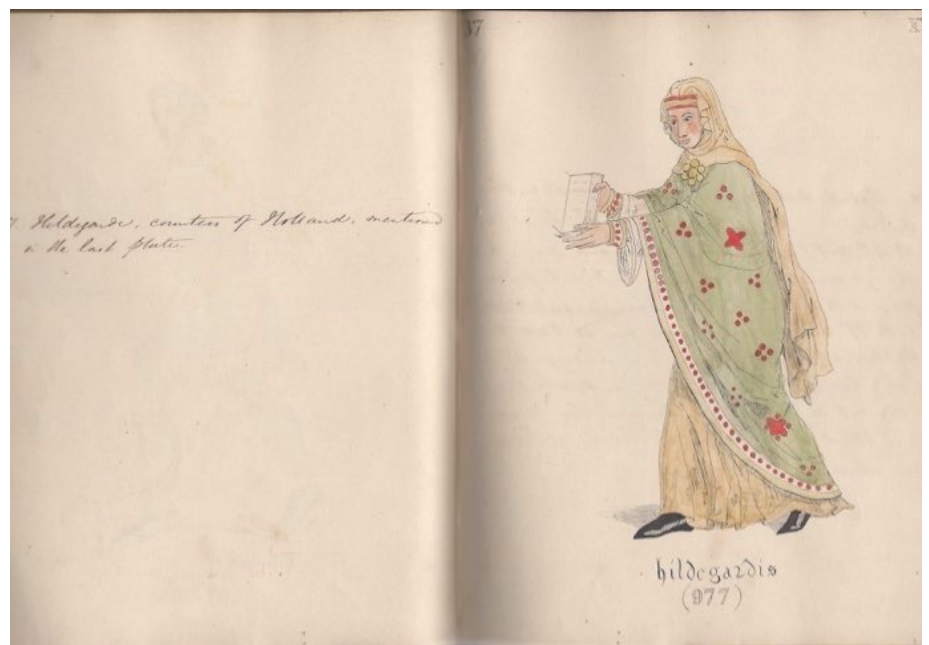 Hildegarde, countess of Holland, mentioned
in the last plate.
37
hildegardis
(977)